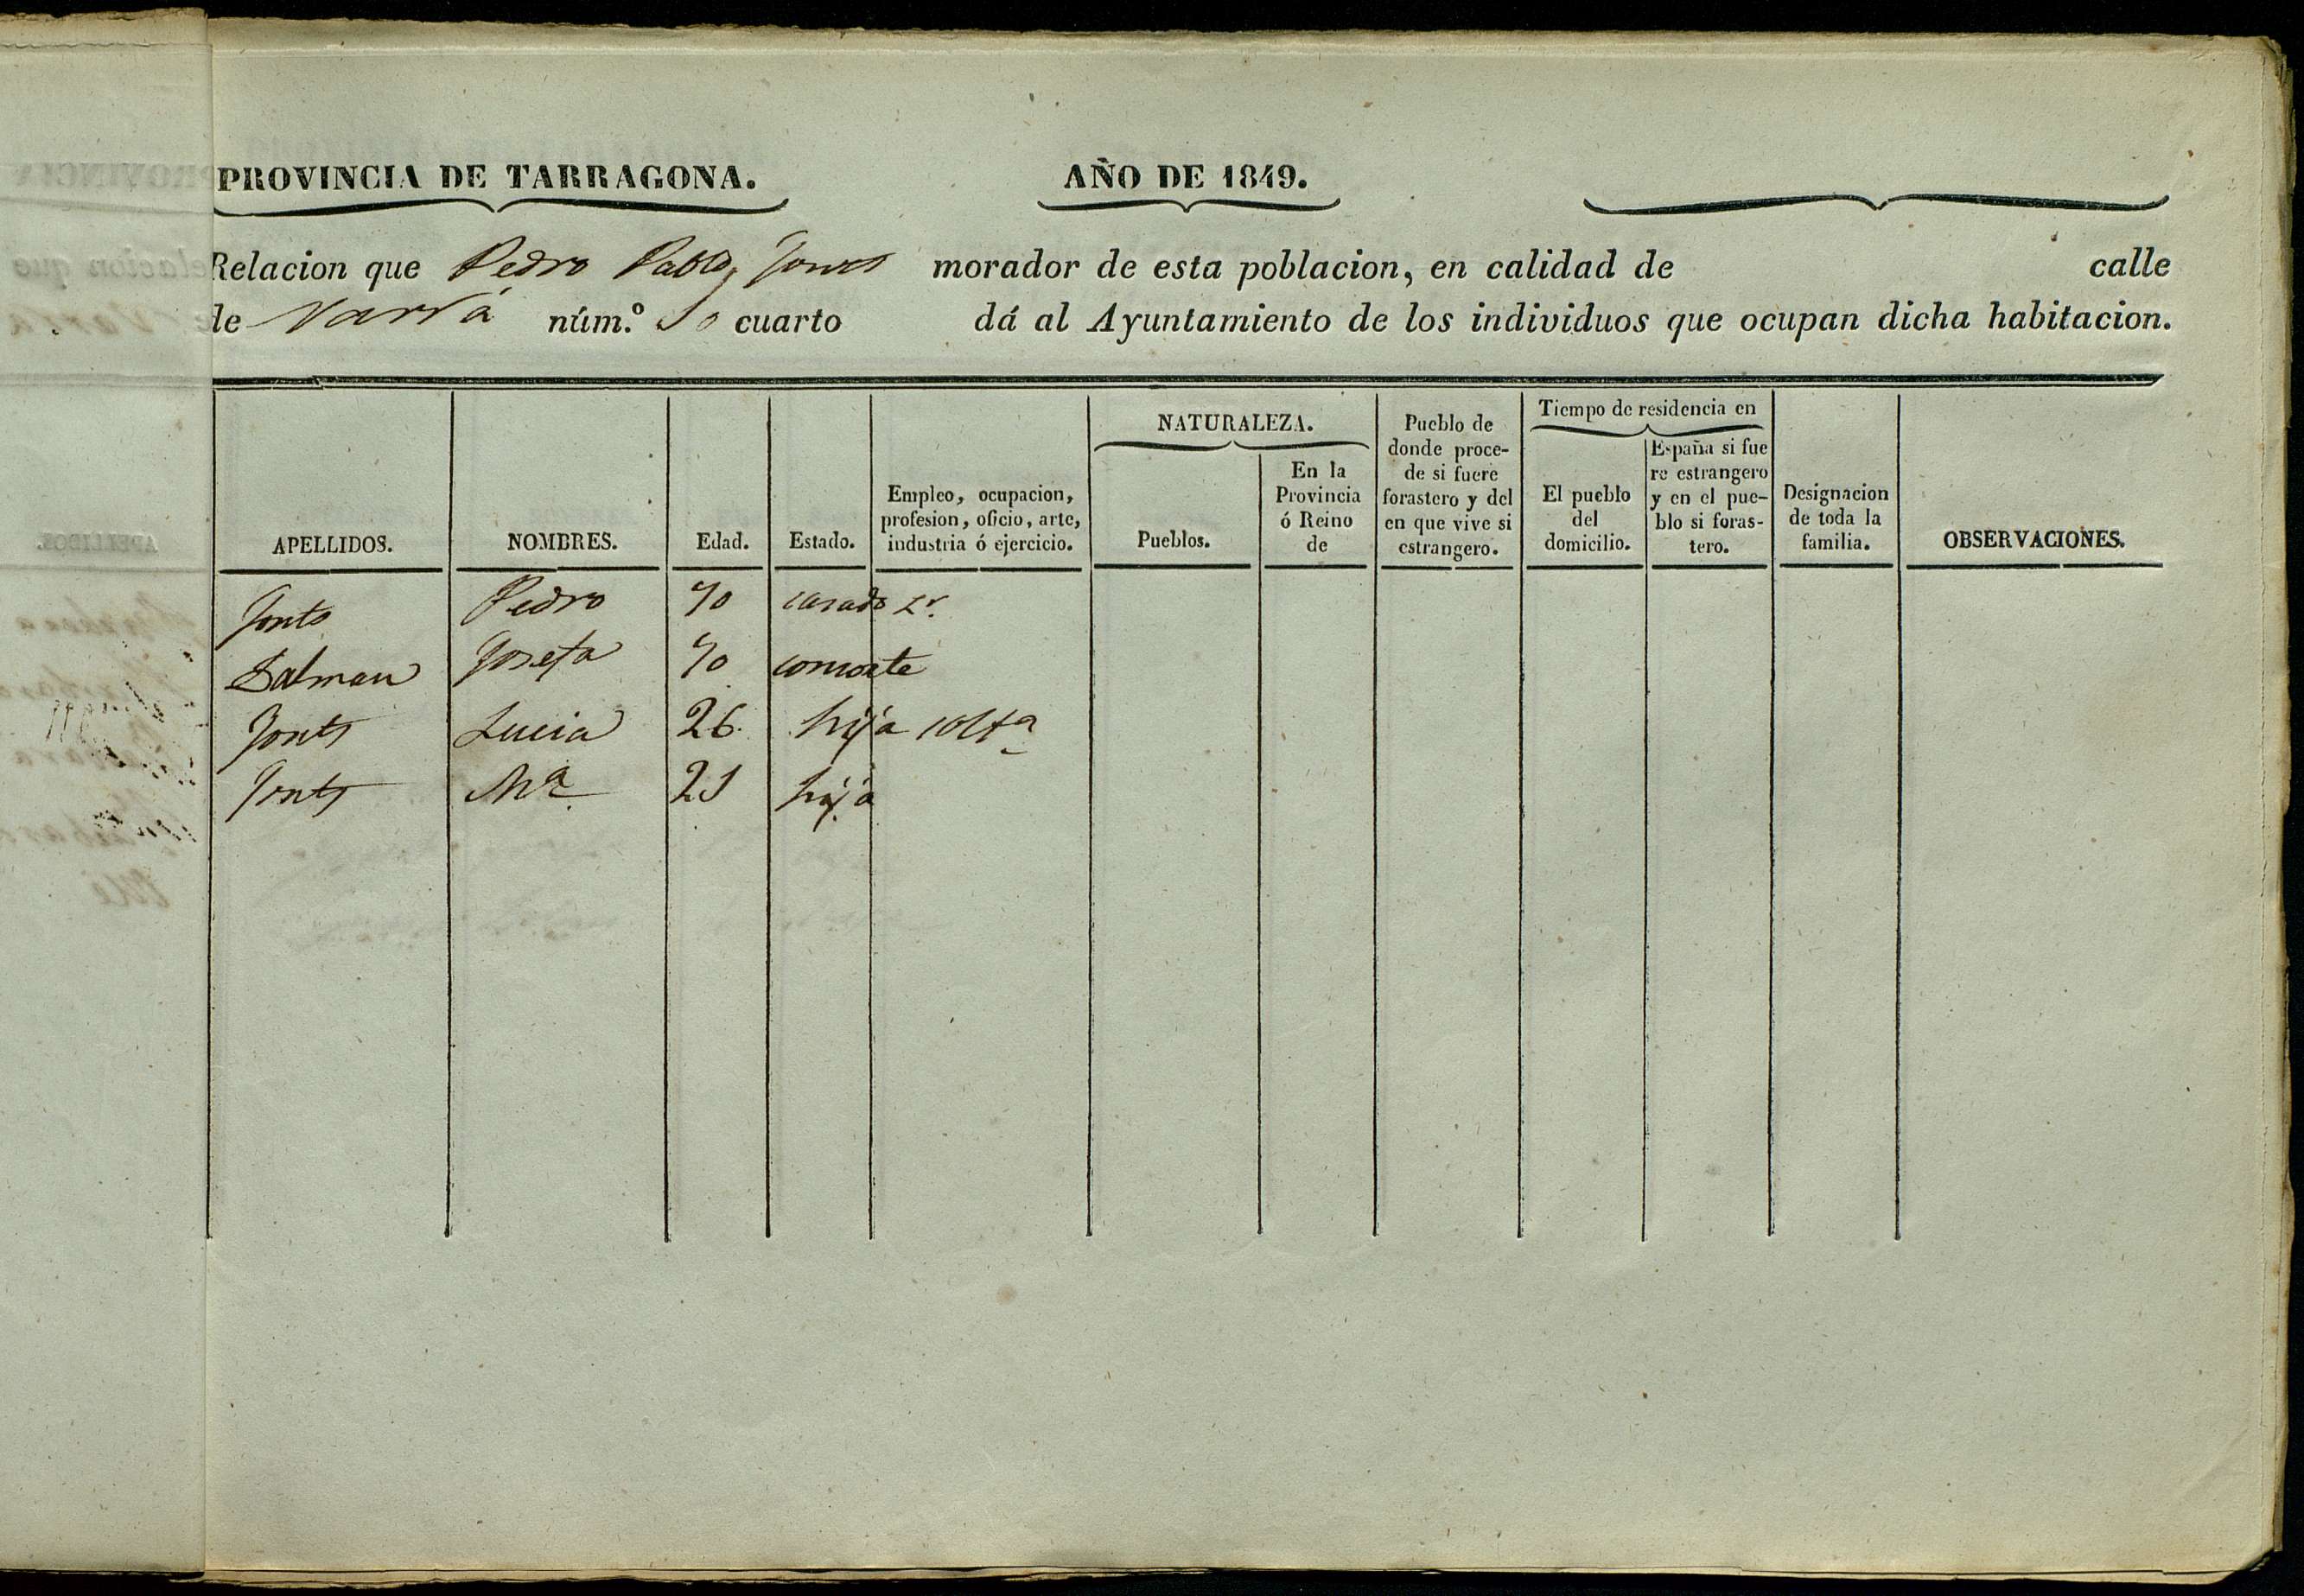 PROVINCIA DE TARRAGONA. AÑO DE 1849.
Relacion que Pedro Pablo morador de esta poblacion, en calidad de calle
de núm.º cuarto dá al Ayuntamiento de los individuos que ocupan dicha habitacion.
APELLIDOS.
NOMBRES.
Edad.
Estado.
Empleo, ocupacion,
profesion, oficio, arte,
industria ó ejercicio.
NATURALEZA.
Pueblos.
En la
Provincia
ó Reino
de
Pueblo de
donde proce-
de si fuere
forastero y del
en que vive si
estrangero.
Tiempo de residencia en
El pueblo
del
domicilio.
España si fue
re estrangero
y en el pue-
blo si foras-
tero.
Designacion
de toda la
familia.
OBSERVACIONES.
Pedro 70 casado
Josefa 70 consorte
Lucia 26 hija solta
Ma hija